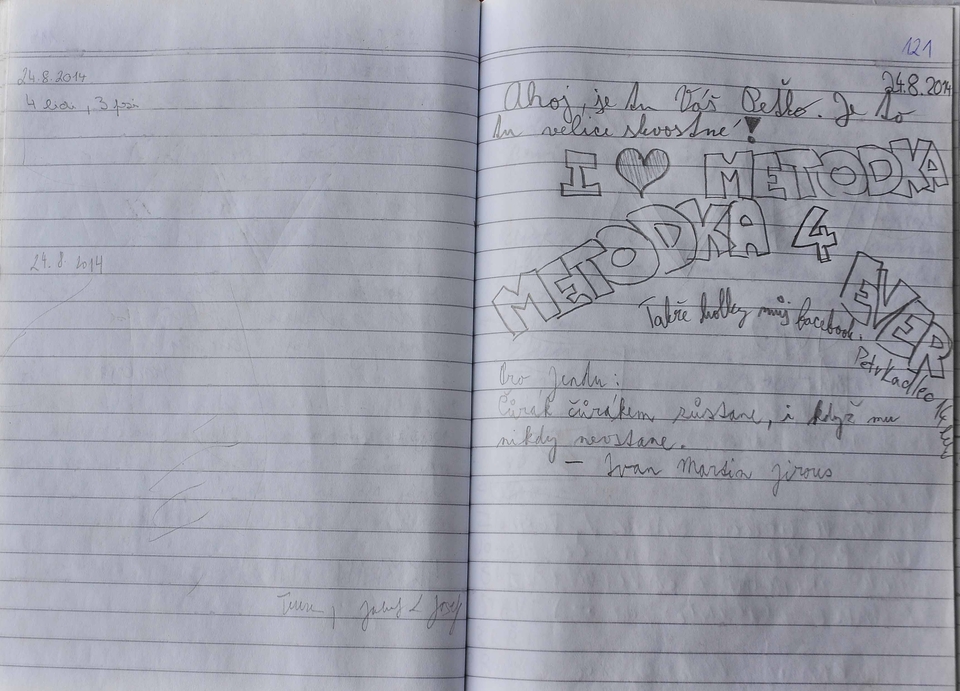 24.8.2014
4 lidi, 3 psi
24.8.2014
121
24.8.2014
Ahoj, je tu Váš Peťko. Je to
tu velice skvostné!
I ♥ METODKA
METODKA 4
EVER
Takže holky můj facebook.
Petr Kadlec 14
Pro Jendu:
Čůrák čůrákem zůstane, i když mu
nikdy nevstane.
— Ivan Martin Jirous